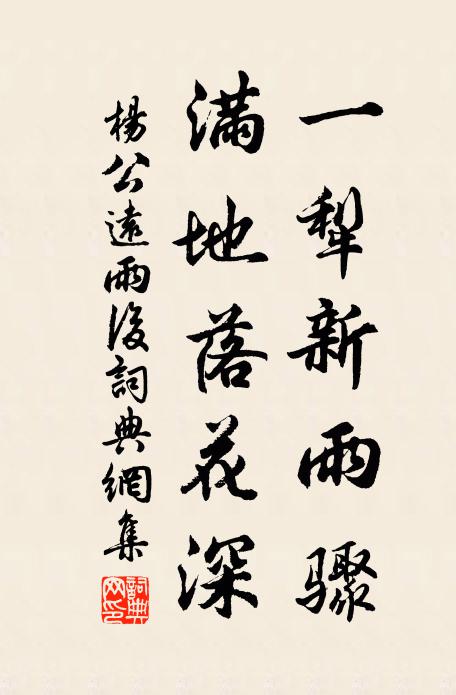 一犁新雨驟
滿地落花深
楊公遠雨後詞典網集
詞典網印